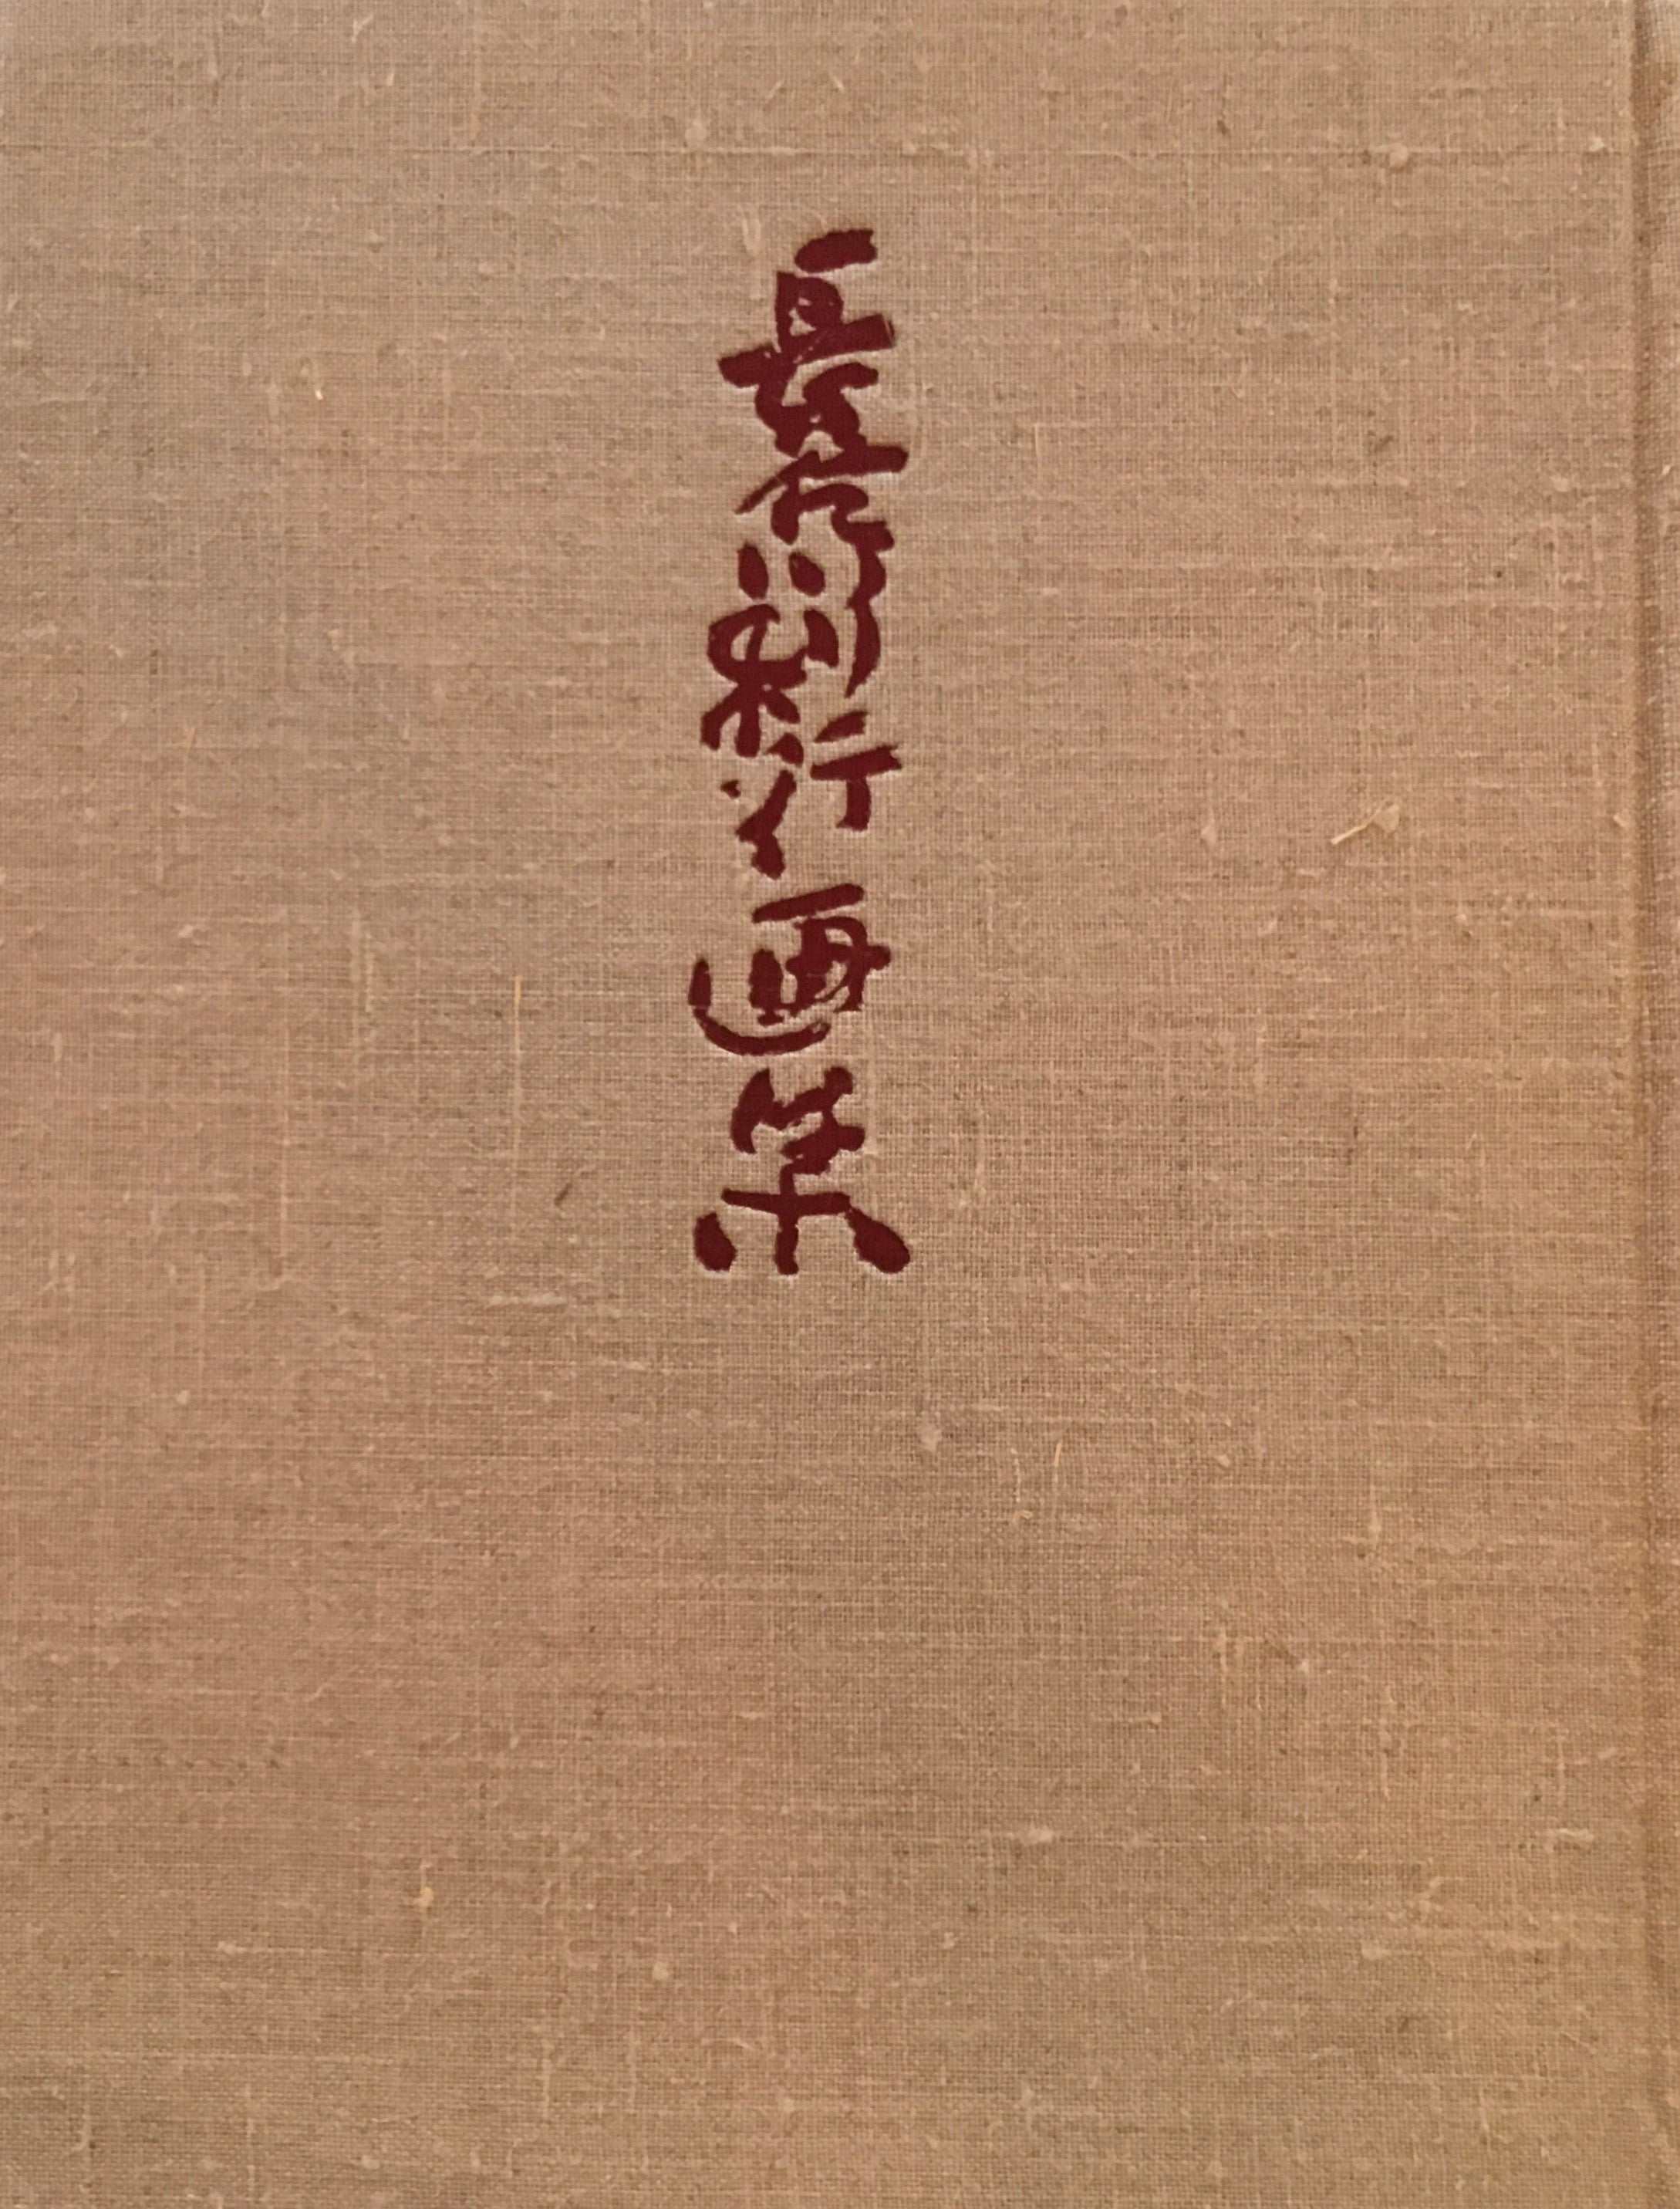 長谷川利行画集